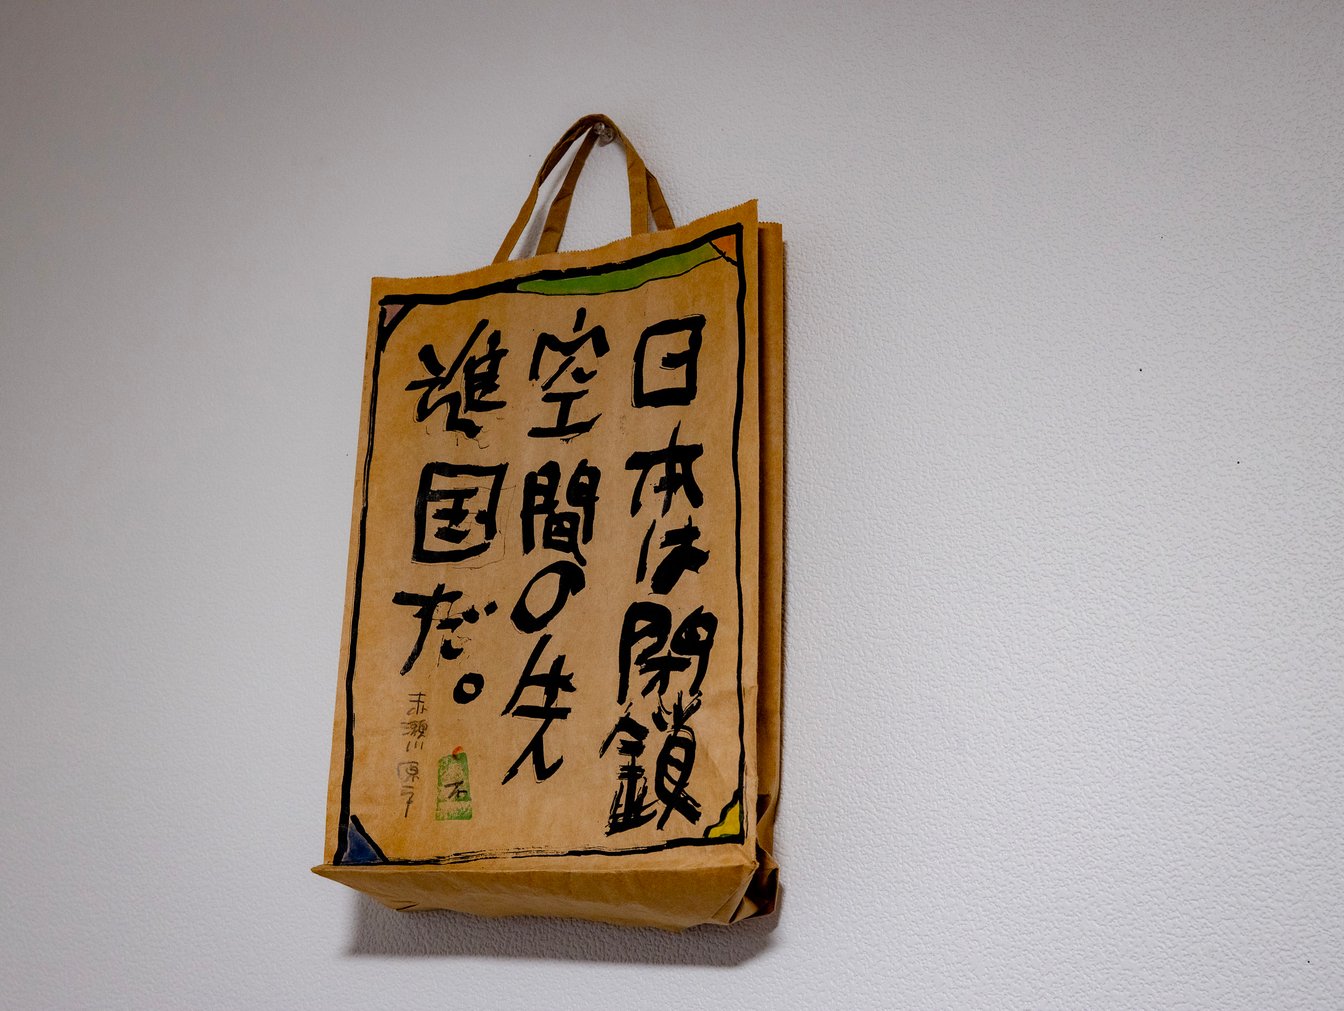 日本は閉鎖
空間の先
進国だ。
赤瀬川原平